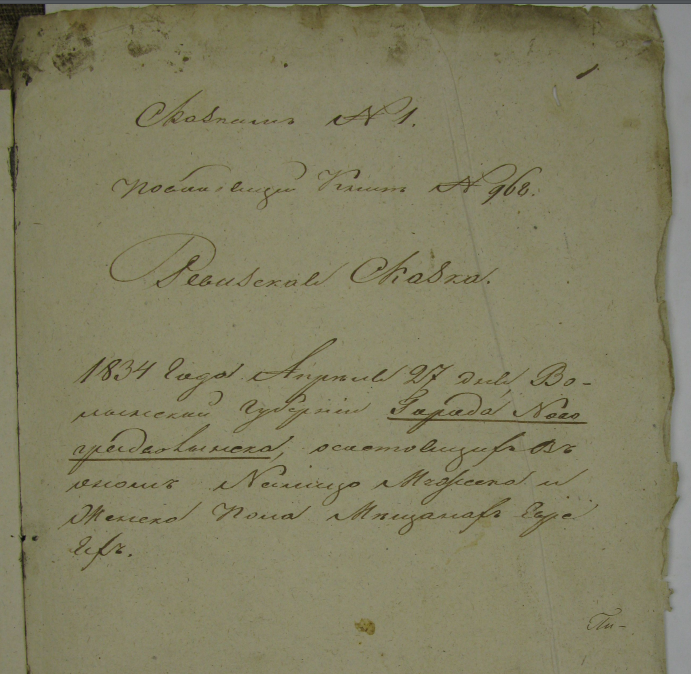 Сказкамъ № 1.
По Книгѣ № 968.
Ревизская Сказка.
1834 Года Апрѣля 27 дня, Во-
лынской Губернiи Города Ново
градволынска, о состоящихъ въ
ономъ Мужеска и
Женска Пола Мѣщанахъ Евре
яхъ.